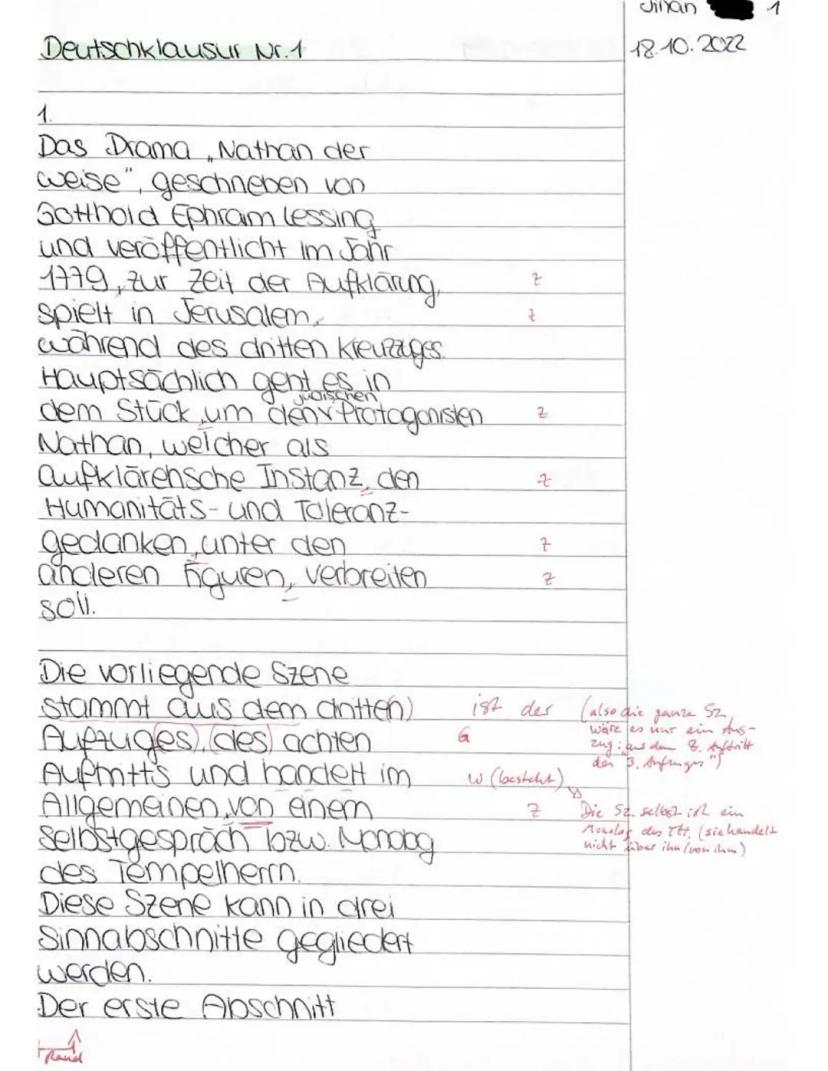 Jihan 1
Deutschklausur Nr. 1 18.10.2022
1.
Das Drama „Nathan der
weise", geschrieben von
Gotthold Ephraim Lessing
und veröffentlicht im Jahr
1779, zur Zeit der Aufklärung, Z
spielt in Jerusalem, Z
während des dritten Kreuzzuges.
Hauptsächlich geht es in
jüdischen
dem Stück um den Protagonisten Z
Nathan, welcher als
aufklärerische Instanz, den Z
Humanitäts- und Toleranz-
gedanken, unter den Z
anderen Figuren, verbreiten Z
soll.
Die vorliegende Szene
stammt aus dem dritten ist der (also die ganze Sz.
Aufzuges, des achten G wäre es nur ein Aus-
zug: aus dem 8. Auftritt
Auftritts und handelt im W (besteht) des 3. Aufzuges")
Allgemeinen, von einem Z Die Sz. selbst ist ein
Selbstgespräch bzw. Monolog Monolog des TH. (sie handelt
nicht über ihn/von ihm)
des Tempelherrn.
Diese Szene kann in drei
Sinnabschnitte gegliedert
werden.
Der erste Abschnitt
Rand